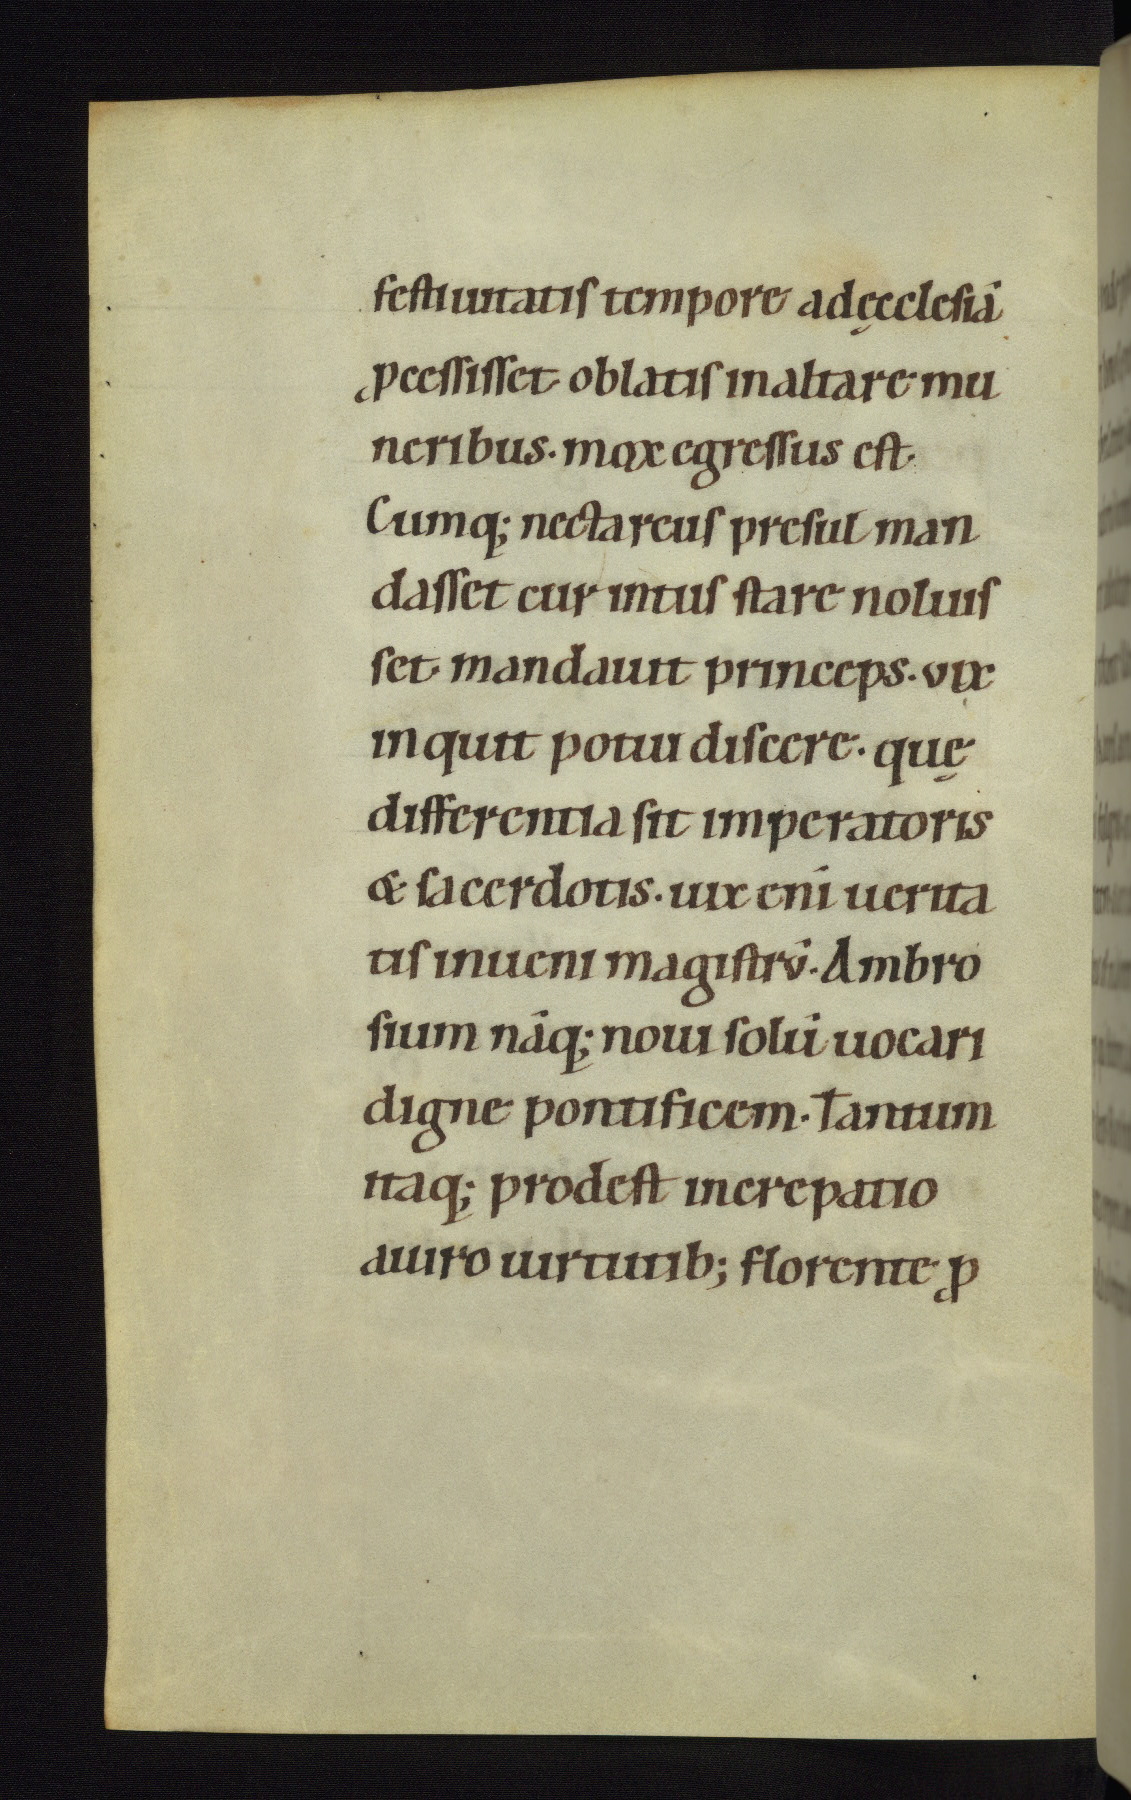 festiuitatis tempore ad ęcclesiā
ꝓcessisset oblatis in altare mu
neribus. mox egressus est.
Cumq; nectareus presul man
dasset cur intus stare noluis
set mandauit princeps. vix
inquit potui discere. quę
differentia sit imperatoris
& sacerdotis. uix enī uerita
tis inueni magistrū. Ambro
sium nāq; noui solū uocari
digne pontificem. Tantum
itaq; prodest increpatio
a uiro uirtutib; florente ꝓ